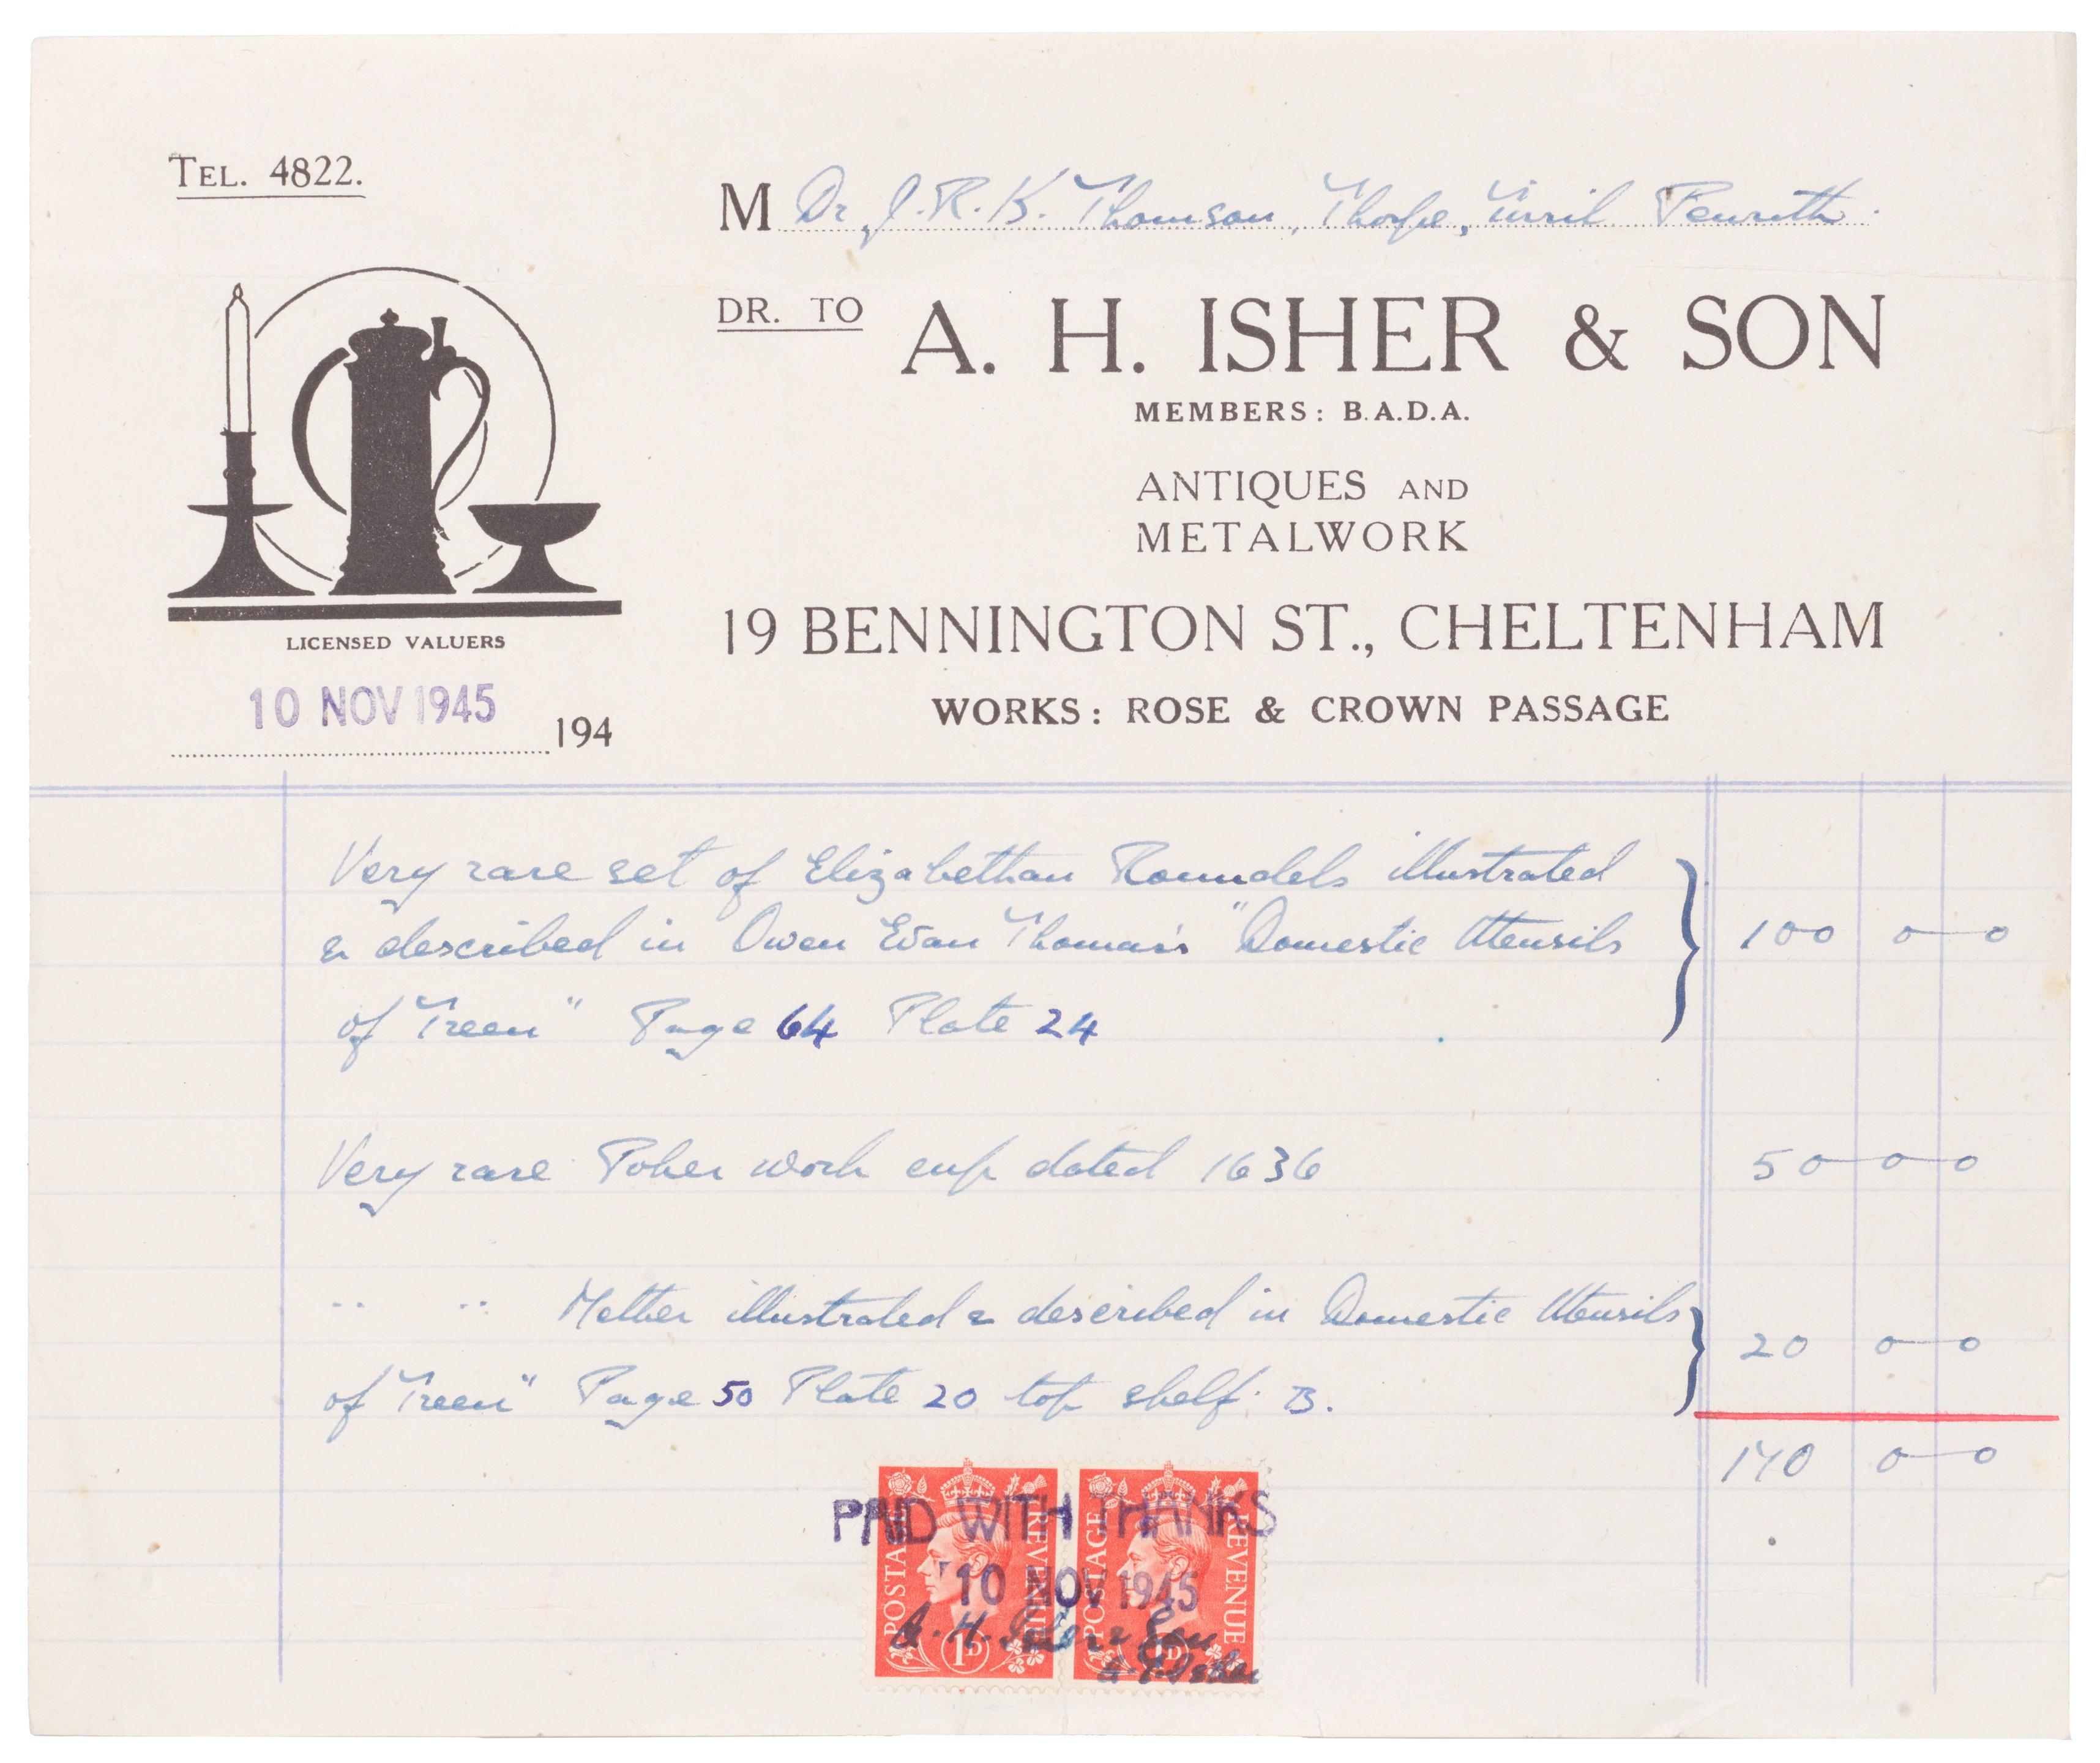 TEL. 4822.
M Dr J. R. K. Thomson, Thorpe, Tirril Penrith.
DR. TO A. H. ISHER & SON
MEMBERS: B.A.D.A.
ANTIQUES AND
METALWORK
19 BENNINGTON ST., CHELTENHAM
WORKS: ROSE & CROWN PASSAGE
LICENSED VALUERS
10 NOV 1945
194
Very rare set of Elizabethan Roundels illustrated
& described in Owen Evan Thomas's "Domestic Utensils 100 0 0
of Treen" Page 64 Plate 24
Very rare Poker work cup dated 1636 50 0 0
" " Mether illustrated & described in Domestic Utensils
20 0 0
of "Treen" Page 50 Plate 20 top shelf. B.
170 0 0
PAID WITH THANKS
10 NOV 1945
A. H. Isher & Son
Isher
POSTAGE REVENUE
1D
POSTAGE REVENUE
1D